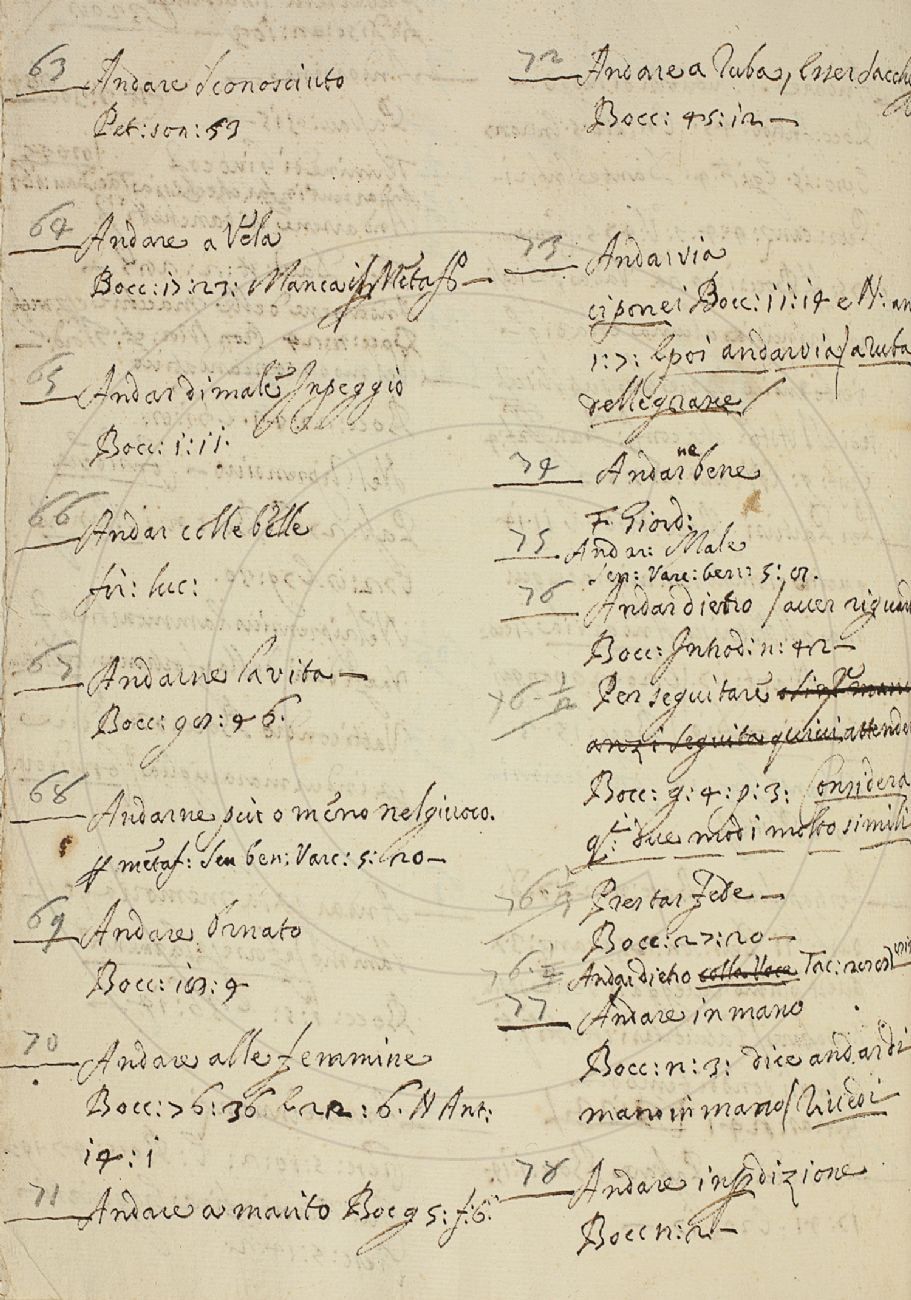 63 Andare Sconosciuto
Pet: son: 53
64 Andare a Vela
Bocc: 17: 27: Manca
65 Andar di male Inpeggio
Bocc: 1: 11:
66 Andar colle belle
fir: luc:
67 Andarne la vita —
Bocc: g 46.
68 Andarne più o meno nel giuoco.
metaf: Sen ben: Varc: 5: 20 —
69 Andare Ornato
Bocc: 9
70 Andare alle femmine
Bocc: 76: 36 6. N Ant:
14: 1
71 Andare a marito Bocc g 5: f: 6:
72 Andare a Ruba,
Bocc: 45: 12 —
73 Andar via
ci ponei Bocc: 11: 14 e N: an
1: 7: E poi andar via / a ruba
delle grane /
74 Andarne bene
F. Giord:
75 Andar: Male
Sen: Varc: ben: 5:
76 Andar dietro / auer riguard
Bocc: Introd: n: 42 —
76 ½ Per seguitare
anzi seguita quiui, attende
Bocc: g: 4: p: 3: Considera
q.ti due modi molto simili
76 Prestar Fede —
Bocc: 27: 20 —
76 Andar dietro colla Voce Tac:
77 Andare in mano
Bocc: n: 3: dice andar di
mano in mano / Riuedi
78 Andare in perdizione
Bocc n: 2: —